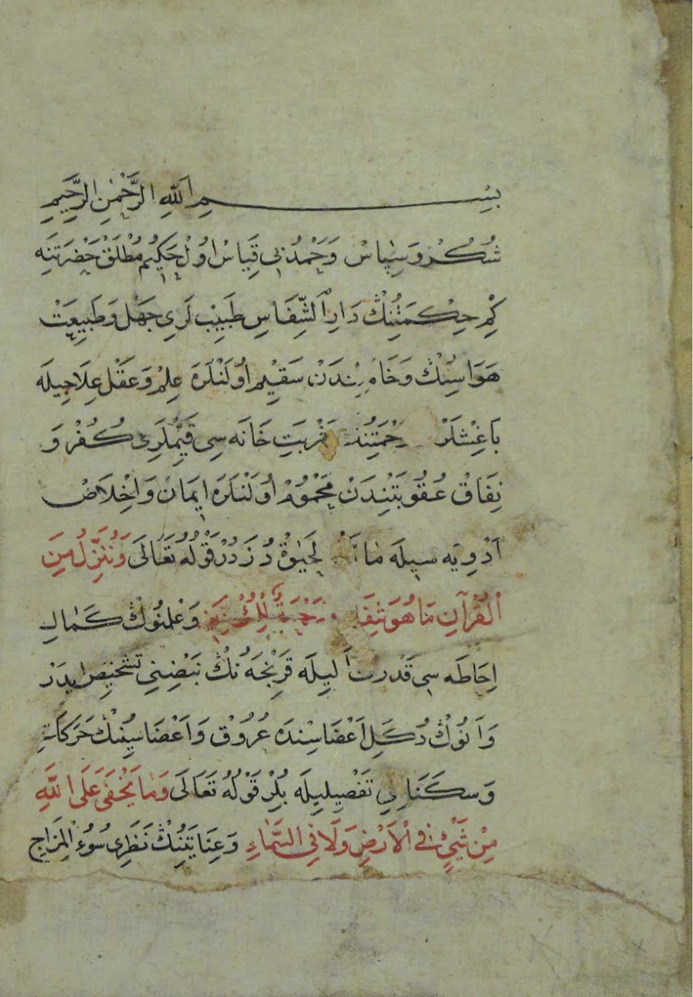 بِسْمِ اللهِ الرَّحْمٰنِ الرَّحِيمِ
شُكُرْ وَسِپَاسْ وَحَمْدِ بِي قِيَاسْ اُولْ حَكِيمِ مُطْلَقْ حَضْرَتِنَه
كِمْ حِكْمَتِنُكْ دَارِ الشِّفَاسِ طَبِيبْ لَرِي جَهْل وَطَبِيعَتْ
هَوَاسِنُكْ وَخَامَ سَقِيمْ اُولَنْلَرَه عِلِمْ وَعَقْل عِلَاجِيلَه
بَاغِشْلَرْ رَحْمَتِنُكْ شَرْبَتِ خَانَه سِي قَيِّمْلَرِي كُفْر وَ
نِفَاقْ عُقُوبَتِنْدَنْ مَحْمُومْ اُولَنْلَرَه اِيمَانْ وَاِخْلَاصْ
اَدْوِيَه سِيلَه لَحَيٰوةْ دُزَدُرْ قَوْلُهُ تَعَالَى وَنُنَزِّلُ مِنَ
الْقُرْآنِ مَا هُوَ شِفَا رَحْمَةٌ وَعِلْمِنُوكْ كَمَالِ
اِحَاطَه سِي قُدْرَت اَلِيلَه قَرِنْجَه نُكْ نَبْضِنِي تَشْخِيصْ اِيدَرْ
وَآنُوكْ دُكَلِ اَعْضَاسِنْدَه عُرُوقْ وَاَعْضَاسِينُكْ حَرَكَاتِ
وَسَكَنَاتِي تَفْصِيلِيلَه بُلُرْ قَوْلُهُ تَعَالَى وَمَا يَخْفَى عَلَى اللهِ
مِنْ شَيْئٍ فِي الْاَرْضِ وَلَا فِي السَّمَاءِ وَعِنَايَتِنُكْ نَظَرِي سُوءُ الْمِزَاجِ